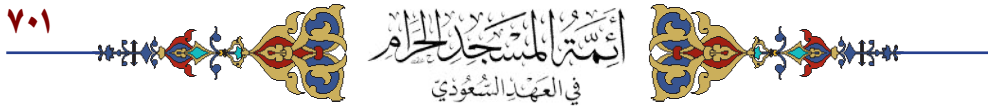 ٧٠١
أَئِمَّةُ الْمَسْجِدِ الْحَرَامِ
فِي الْعَهْدِ السُّعُودِيِّ